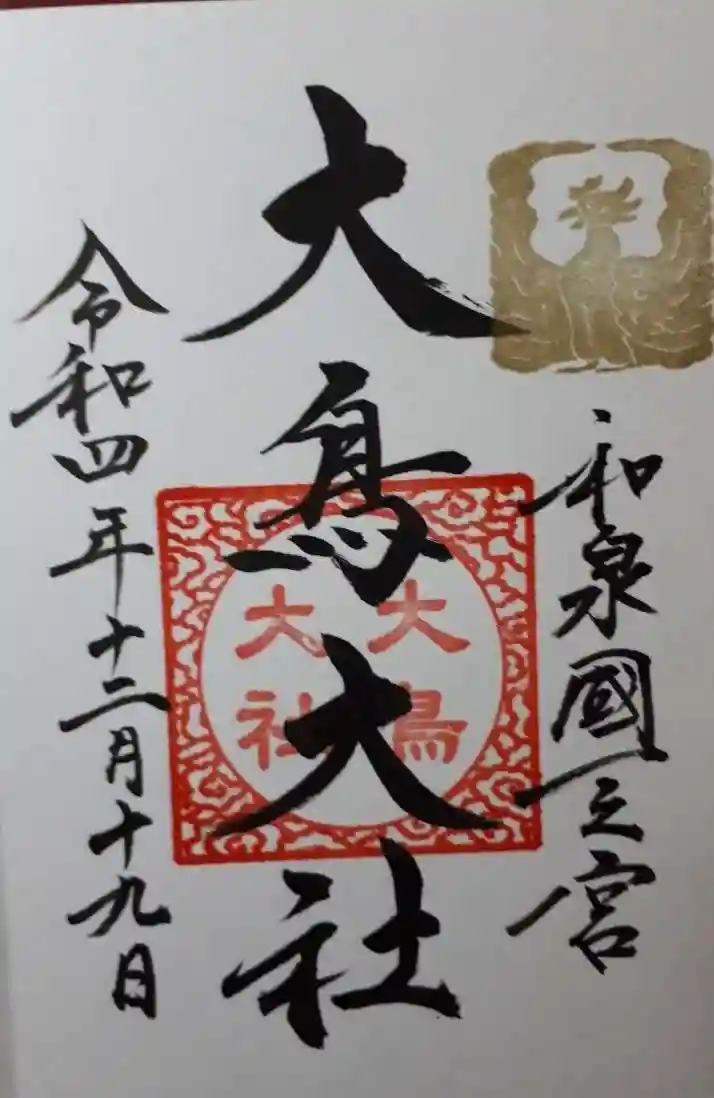 和泉國一之宮
大鳥大社
大鳥
大社
令和四年十二月十九日